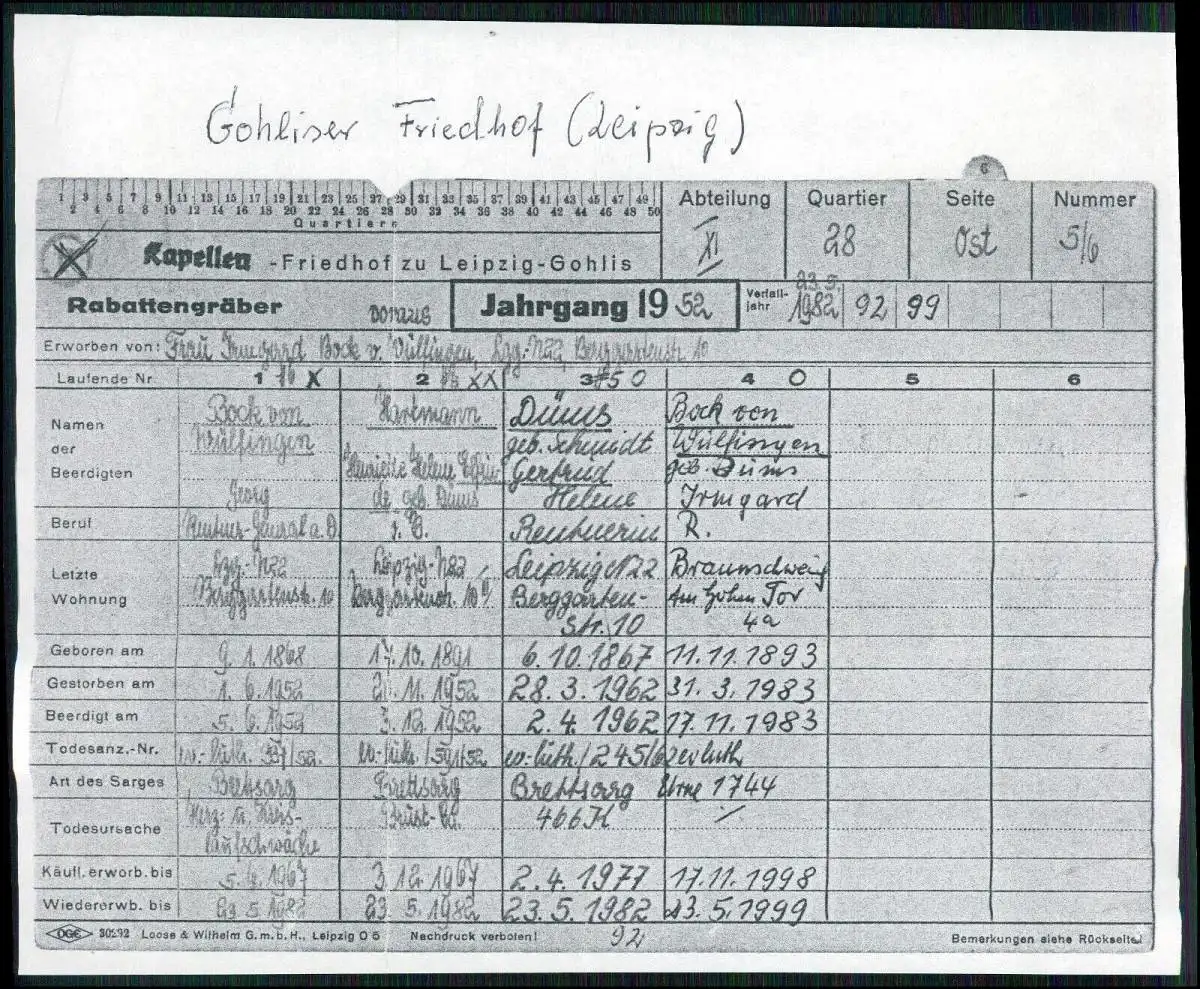 Gohliser Friedhof (Leipzig)
6
1 3 5 7 9 11 13 15 17 19 21 23 25 27 29 31 33 35 37 39 41 43 45 47 49
2 4 6 8 10 12 14 16 18 20 22 24 26 28 30 32 34 36 38 40 42 44 46 48 50
Quartiere
Abteilung Quartier Seite Nummer
XI 28 Ost 5/6
Kapellen -Friedhof zu Leipzig-Gohlis
Rabattengräber Jahrgang 19 52 Verfall-jahr 23.5. 1982 92 99
Erworben von: Frau Irmgard Bock v. Wülfingen, Lpzg.-N22, Berggartenstr. 10
Laufende Nr. 1 X 2 XX 3 O 4 O 5 6
Namen der Beerdigten
Bock von Wülfingen Georg
Hartmann Henriette Helene Elfriede geb. Düms
Düms geb. Schmidt Gertrud Helene
Bock von Wülfingen geb. Düms Irmgard
Beruf Rentner-General a. D. Rentnerin R.
Letzte Wohnung
Lzg.-N22 Berggartenstr. 10
Leipzig-N22 Berggartenstr. 10
Leipzig N22 Berggarten-str. 10
Braunschweig Am hohen Tor 4a
Geboren am 9. 1. 1868 17. 10. 1891 6. 10. 1867 11. 11. 1893
Gestorben am 1. 6. 1952 11. 1952 28. 3. 1962 31. 3. 1983
Beerdigt am 5. 6. 1952 3. 12. 1952 2. 4. 1962 17. 11. 1983
Todesanz.-Nr. ev.-luth. /52. ev.-luth. /52 ev.-luth./245/62 ev luth
Art des Sarges Brettsarg Brettsarg Brettsarg Urne 1744
Todesursache Herz- u. Kreis-laufschwäche Brust-Ca. 466H
Käufl. erworb. bis 1967 3. 12. 1967 2. 4. 1977 17. 11. 1998
Wiedererwb. bis 23 5. 1982 23. 5. 1982 23. 5. 1982 23. 5. 1999
92
OGE 30292 Loose & Wilhelm G.m.b.H., Leipzig O 5 Nachdruck verboten! Bemerkungen siehe Rückseite!